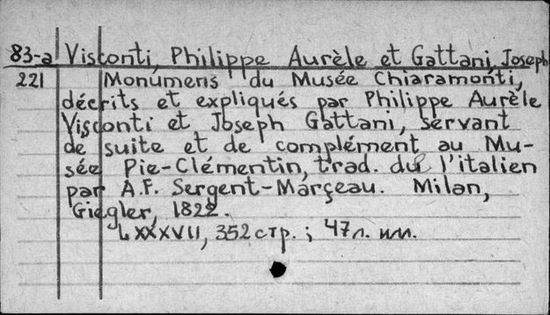 83-a Visconti, Philippe Aurèle et Gattani, Joseph
221 Monumens du Musée Chiaramonti,
décrits et expliqués par Philippe Aurèle
Visconti et Joseph Gattani, servant
de suite et de complément au Mu-
sée Pie-Clémentin, trad. du l'italien
par A.F. Sergent-Marçeau. Milan,
Giegler, 1822.
LXXXVII, 352 стр.; 47 л. илл.